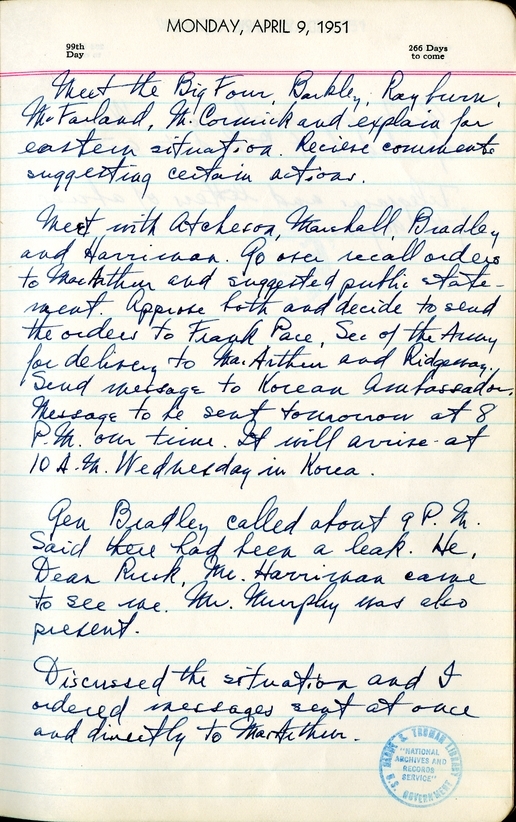 MONDAY, APRIL 9, 1951
99th
Day
266 Days
to come
Meet the Big Four, Barkley, Rayburn,
McFarland, McCormick and explain far
eastern situation. Recieve comments
suggesting certain actions.
Meet with Atcheson, Marshall, Bradley
and Harriman. Go over recall orders
to MacArthur and suggested public state-
ment. Approve both and decide to send
the orders to Frank Pace, Sec of the Army
for delivery to MacArthur and Ridgeway.
Send message to Korean Ambassador.
Message to be sent tomorrow at 8
P.M. our time. It will arrive at
10 A.M. Wednesday in Korea.
Gen Bradley called about 9 P.M.
Said there had been a leak. He,
Dean Rusk, Mr. Harriman came
to see me. Mr. Murphy was also
present.
Discussed the situation and I
ordered messages sent at once
and directly to MacArthur.
HARRY S. TRUMAN LIBRARY
"NATIONAL
ARCHIVES AND
RECORDS
SERVICE"
U.S. GOVERNMENT